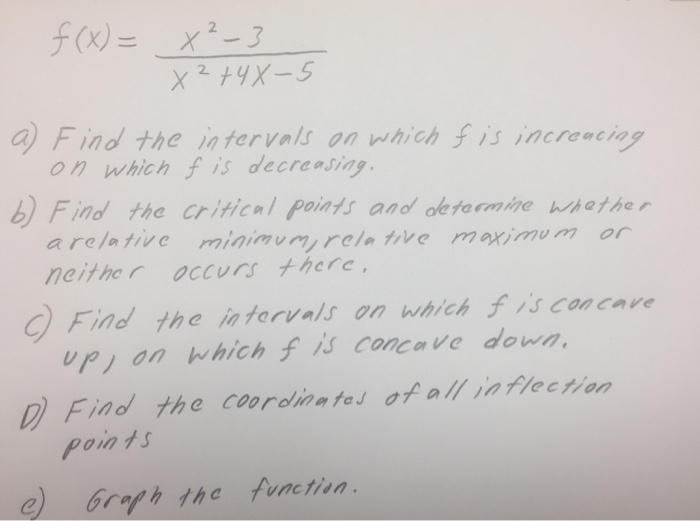 f(x) = x² - 3
x² + 4x - 5
a) Find the intervals on which f is increacing
on which f is decreasing.
b) Find the critical points and determine whether
a relative minimum, relative maximum or
neither occurs there.
C) Find the intervals on which f is concave
up, on which f is concave down.
D) Find the coordinates of all inflection
points
e) Graph the function.